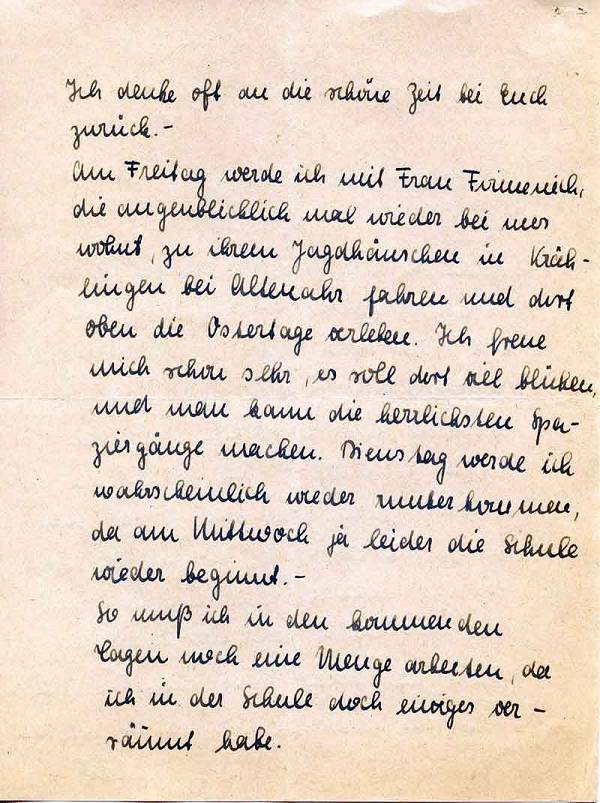 Ich denke oft an die schöne Zeit bei Euch
zurück.-
Am Freitag werde ich mit Frau Firmenich,
die augenblicklich mal wieder bei uns
wohnt, zu ihrem Jagdhäuschen in Kräh-
lingen bei Altenahr fahren und dort
oben die Ostertage verleben. Ich freue
mich schon sehr, es soll dort viel blühen,
und man kann die herrlichsten Spa-
ziergänge machen. Dienstag werde ich
wahrscheinlich wieder runterkommen,
da am Mittwoch ja leider die Schule
wieder beginnt.-
So muß ich in den kommenden
Tagen noch eine Menge arbeiten, da
ich in der Schule doch einiges ver-
säumt habe.